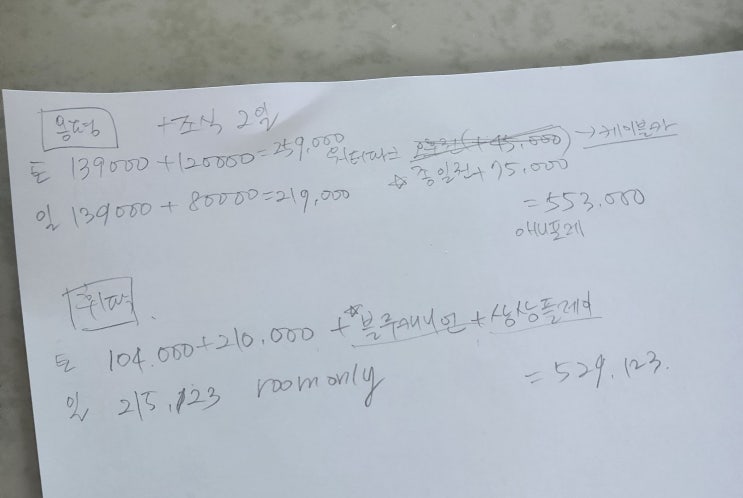 용평 +조식 2일
토 139000+120000=259,000 워터파크 오후권(+45,000) →케이블카
일 139000+80000=219,000 ☆종일권+75,000
=553,000
애니포레
휘팍.
토 104.000+210.000 +☆블루캐니언+상상플레이
일 215.123 room only =529.123.